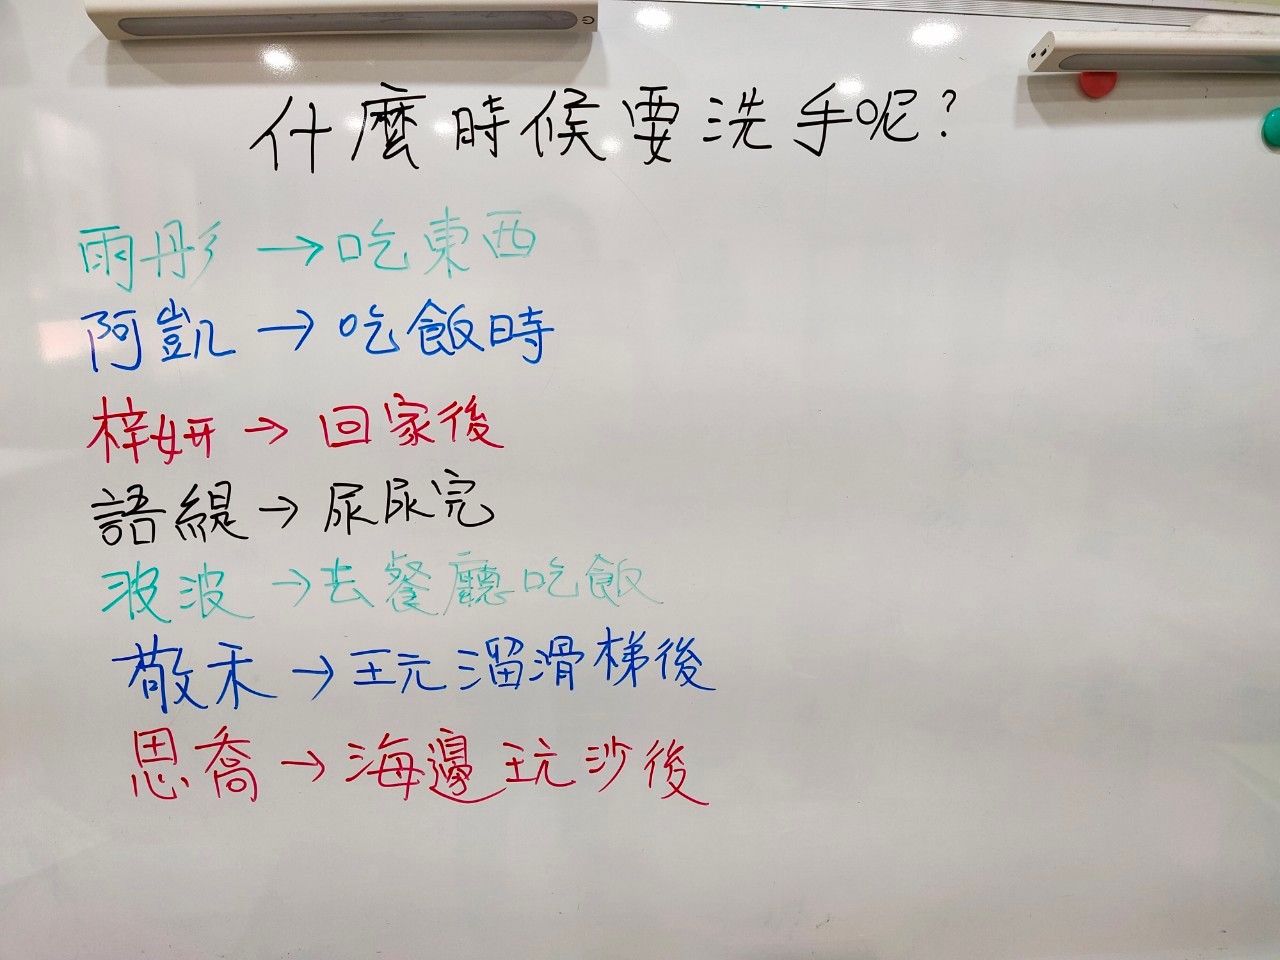 什麼時候要洗手呢?
雨彤→吃東西
阿凱→吃飯時
梓妍→回家後
語緹→尿尿完
波波→去餐廳吃飯
敬禾→玩溜滑梯後
思喬→海邊玩沙後